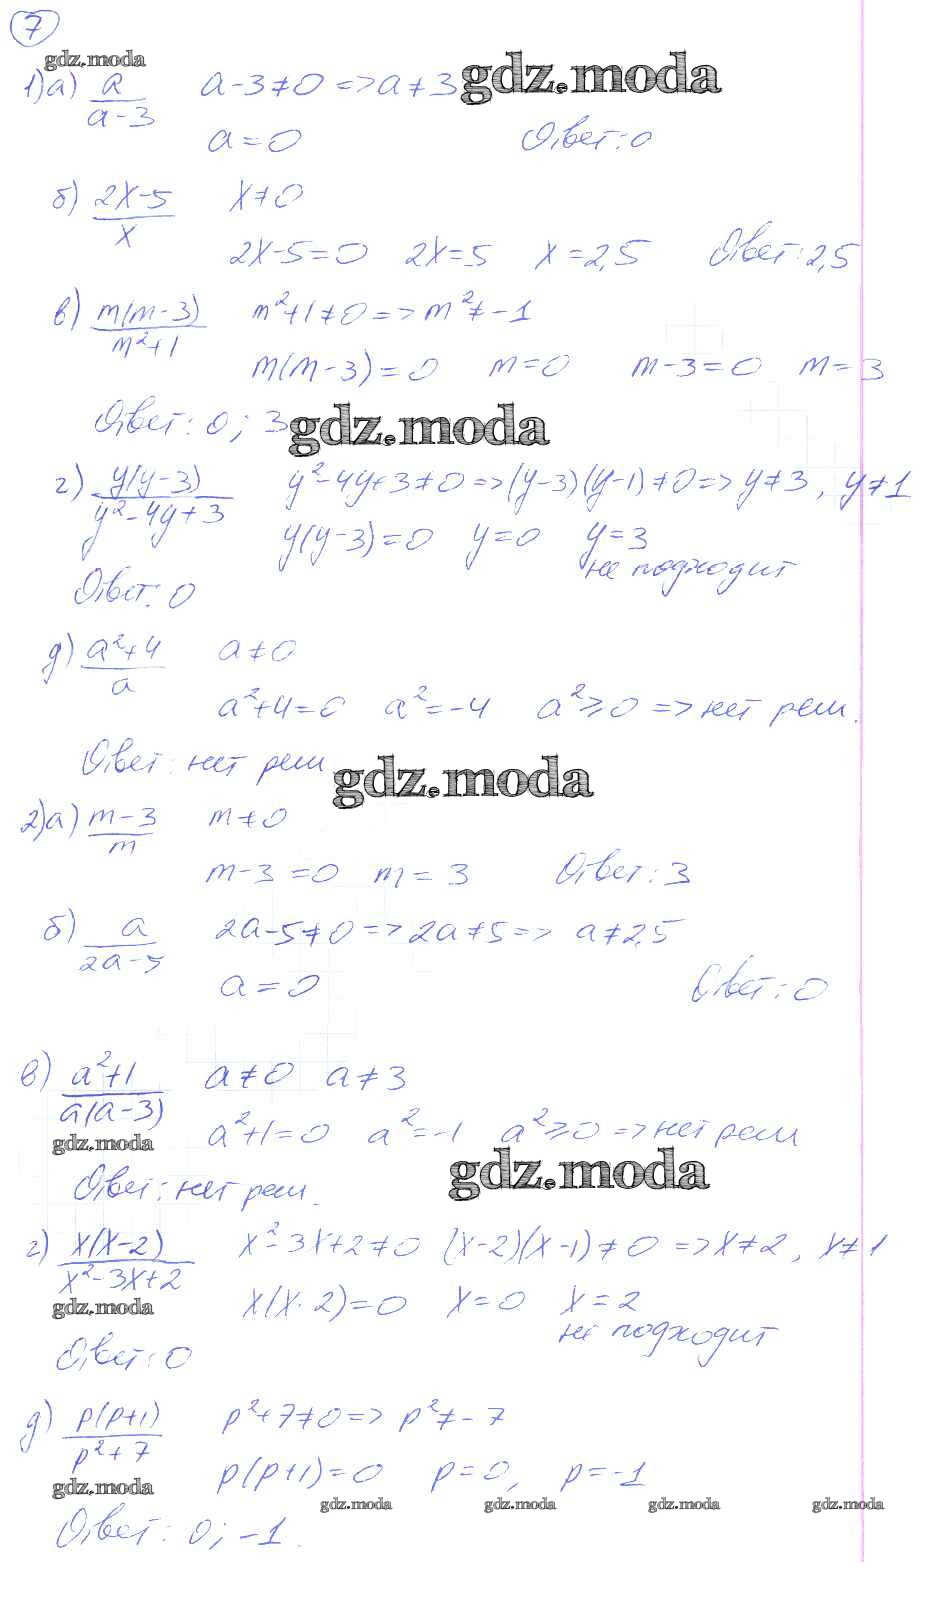 7
gdz.moda
1)а) a/(a-3) a-3≠0 => a≠3 gdz.moda
a=0 Ответ: 0
б) (2x-5)/x x≠0
2x-5=0 2x=5 x=2,5 Ответ: 2,5
в) m(m-3)/(m²+1) m²+1≠0 => m²≠-1
m(m-3)=0 m=0 m-3=0 m=3
Ответ: 0; 3 gdz.moda
г) y(y-3)/(y²-4y+3) y²-4y+3≠0 => (y-3)(y-1)≠0 => y≠3, y≠1
y(y-3)=0 y=0 y=3
не подходит
Ответ: 0
д) (a²+4)/a a≠0
a²+4=0 a²=-4 a²≥0 => нет реш.
Ответ: нет реш gdz.moda
2)а) (m-3)/m m≠0
m-3=0 m=3 Ответ: 3
б) a/(2a-5) 2a-5≠0 => 2a≠5 => a≠2,5
a=0 Ответ: 0
в) (a²+1)/(a(a-3)) a≠0 a≠3
gdz.moda a²+1=0 a²=-1 a²≥0 => нет реш
gdz.moda
Ответ: нет реш.
г) x(x-2)/(x²-3x+2) x²-3x+2≠0 (x-2)(x-1)≠0 => x≠2, x≠1
gdz.moda x(x-2)=0 x=0 x=2
не подходит
Ответ: 0
д) p(p+1)/(p²+7) p²+7≠0 => p²≠-7
gdz.moda p(p+1)=0 p=0, p=-1
gdz.moda gdz.moda gdz.moda gdz.moda
Ответ: 0; -1.